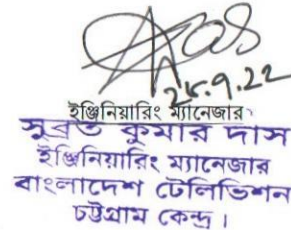 ২৮.৯.২২
ইঞ্জিনিয়ারিং ম্যানেজার
সুব্রত কুমার দাস
ইঞ্জিনিয়ারিং ম্যানেজার
বাংলাদেশ টেলিভিশন
চট্টগ্রাম কেন্দ্র।